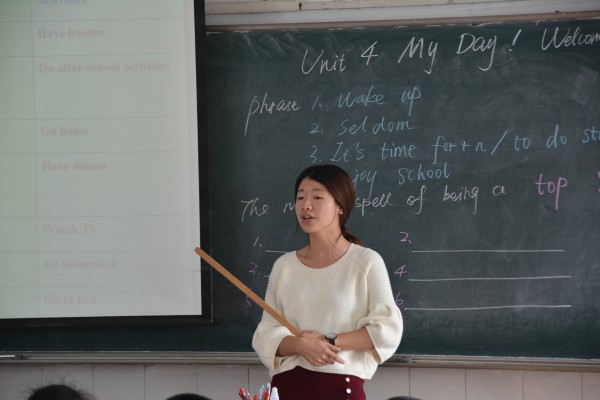 Activities
Have lessons
Do after-school activities
Go home
Have dinner
Watch TV
Do homework
Go to bed
Unit 4 My Day! Welcom
phrase 1. Wake up
2. Seldom
3. It's time for+n / to do st
joy school
The spell of being a top
1.
2.
3.
4